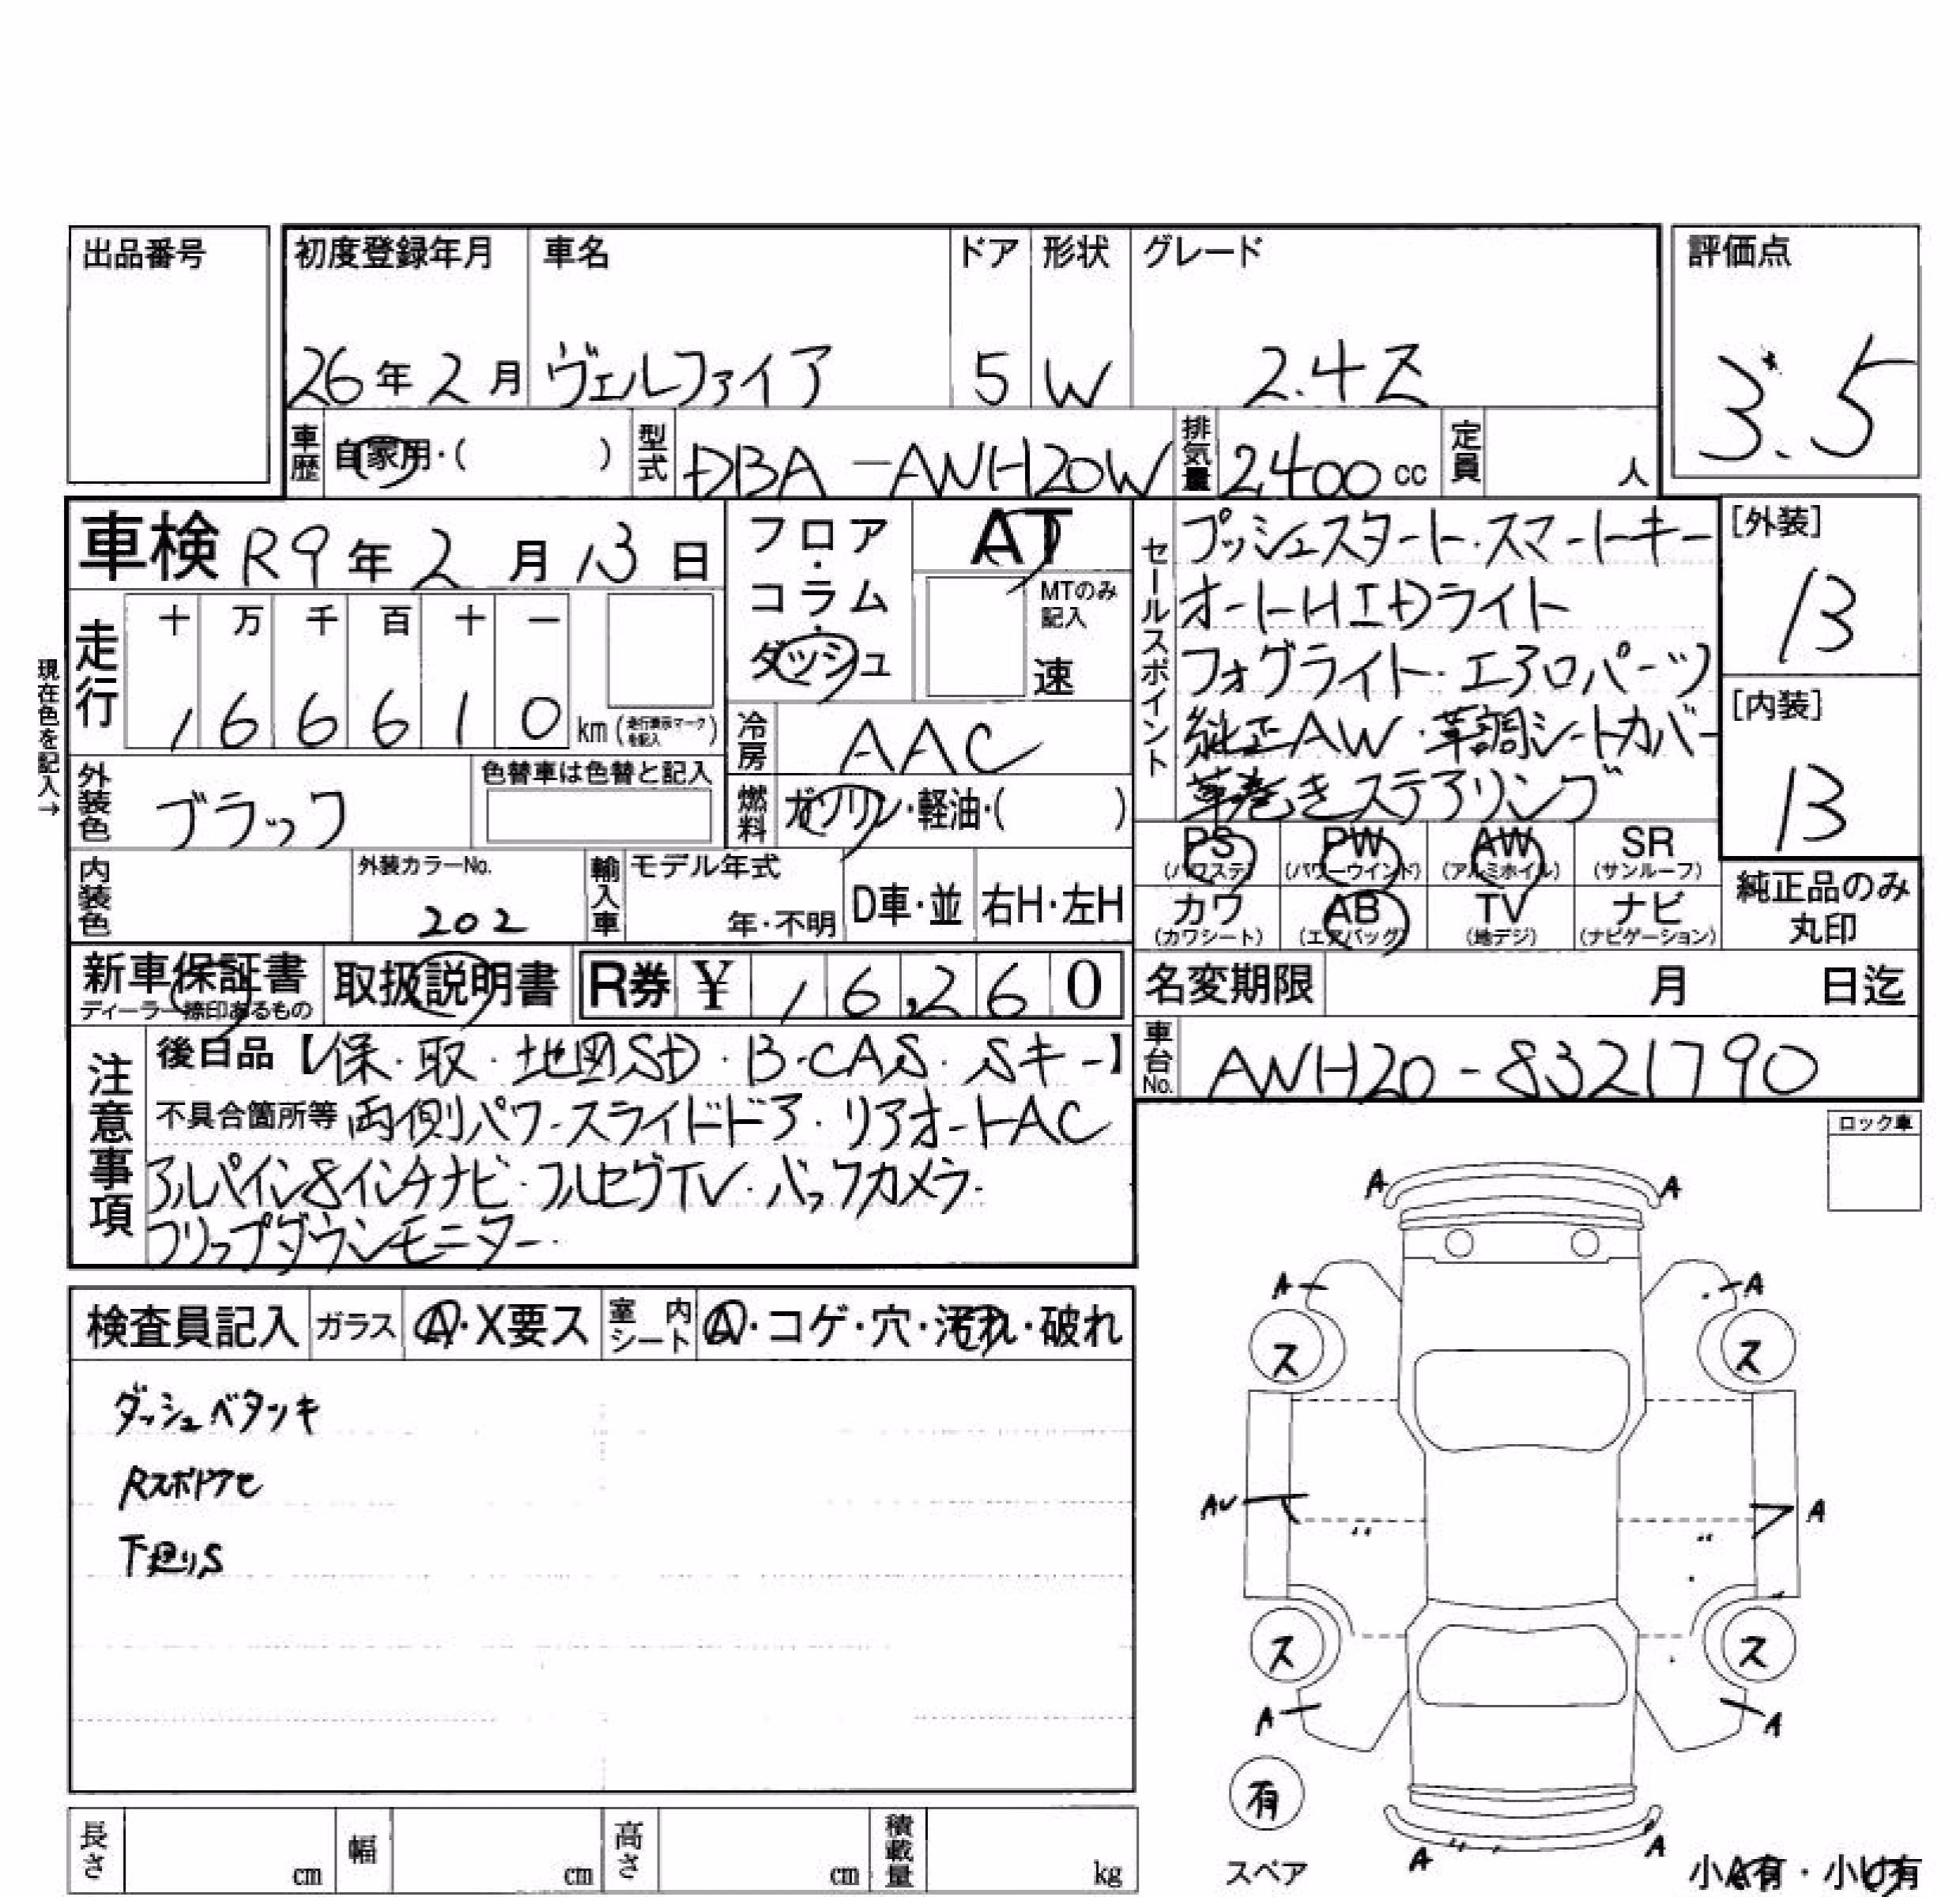 出品番号
初度登録年月 車名 ドア 形状 グレード
26年2月 ヴェルファイア 5 W 2.4Z
評価点
3.5
車歴 自家用・( ) 型式 DBA-ANH20W 排気量 2,400cc 定員 人
車検 R9年2月13日
フロア・コラム・ダッシュ
AT
MTのみ記入
速
現在色を記入→
走行 十 万 千 百 十 一
1 6 6 6 1 0 km (走行表示マークを記入)
冷房 AAC
外装色 ブラック 色替車は色替と記入
燃料 ガソリン・軽油・( )
内装色 外装カラーNo. 202
輸入車 モデル年式 年・不明 D車・並 右H・左H
セールスポイント
プッシュスタート・スマートキー
オートHIDライト
フォグライト・エアロパーツ
純正AW・革調シートカバー
革巻きステアリング
[外装]
13
[内装]
13
PS (パワステ) PW (パワーウインド) AW (アルミホイル) SR (サンルーフ)
カワ (カワシート) AB (エアバッグ) TV (地デジ) ナビ (ナビゲーション)
純正品のみ丸印
新車保証書 ディーラー捺印あるもの 取扱説明書 R券 ¥ 16,260
名変期限 月 日迄
車台No. ANH20-8321790
注意事項
後日品【保・取・地図SD・B-CAS・Sキー】
不具合箇所等 両側パワースライドドア・リアオートAC
アルパイン8インチナビ・フルセグTV・バックカメラ・
フリップダウンモニター
ロック車
検査員記入 ガラス A・X要ス 室内シート A・コゲ・穴・汚れ・破れ
ダッシュベタツキ
下廻りS
A A
A A
ス ス
AU A
〃 〃
ス ス
A A
有
スペア
A 〃 A
小A有・小U有
長さ cm 幅 cm 高さ cm 積載量 kg